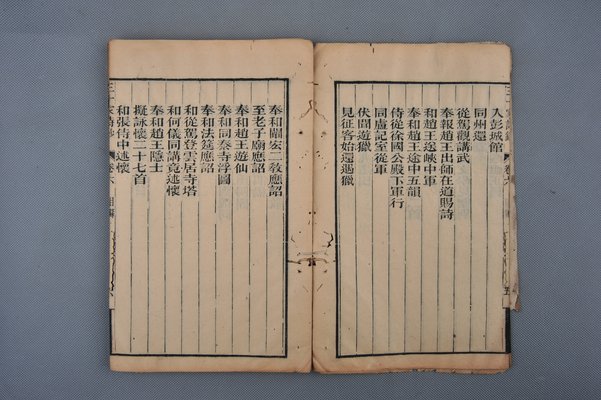 入彭城館
同州還
從駕觀講武
奉報趙王出師在道賜詩
和趙王送峽中軍
奉和趙王途中五韻
侍從徐國公殿下軍行
同盧記室從軍
伏聞遊獵
見征客始還遇獵
奉和闡宏二敎應詔
至老子廟應詔
奉和趙王遊仙
奉和同泰寺浮圖
奉和法筵應詔
和從駕登雲居寺塔
和何儀同講竟述懷
奉和趙王隱士
擬詠懷二十七首
和張侍中述懷
卷六 目錄